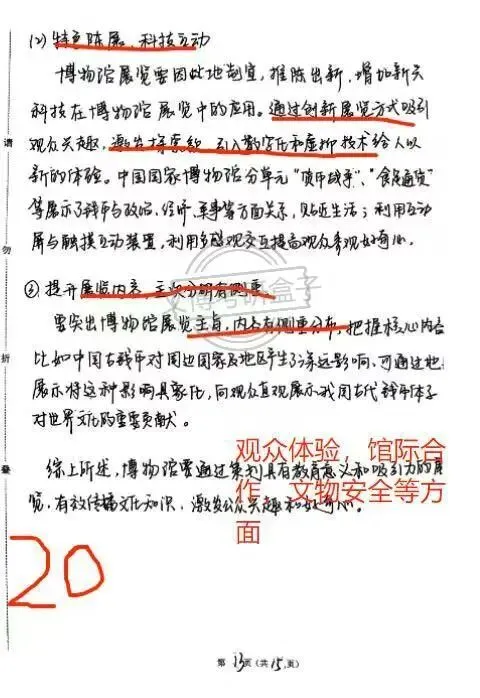 (2) 特色陈展、科技互动
博物馆展览要因此地制宜，推陈出新，增加新兴
科技在博物馆展览中的应用。通过创新展览方式吸引
观众兴趣，激发探索欲，引入数字化和虚拟技术给人以
新的体验。中国国家博物馆分单元“货币战争”、“食足通货”
等展示了钱币与政治、经济、军事等方面关系，贴近生活；利用互动
屏与触摸互动装置，利用多感观交互提高观众参观好奇心。
③ 提升展览内容，主次分明有侧重
要突出博物馆展览主旨，内容有侧重分布，把握核心内容
比如中国古钱币对周边国家及地区产生了深远影响，可通过地
展示将这种影响具象化，向观众直观展示我国古代钱币体系
对世界文化的重要贡献。
综上所述，博物馆要通过策划具有教育意义和吸引力的展
览，有效传播文化知识，激发公众兴趣和好奇心。
观众体验，馆际合
作，文物安全等方
面
20
请
勿
折
叠
博考研盒子
第 13 页（共 15 页）